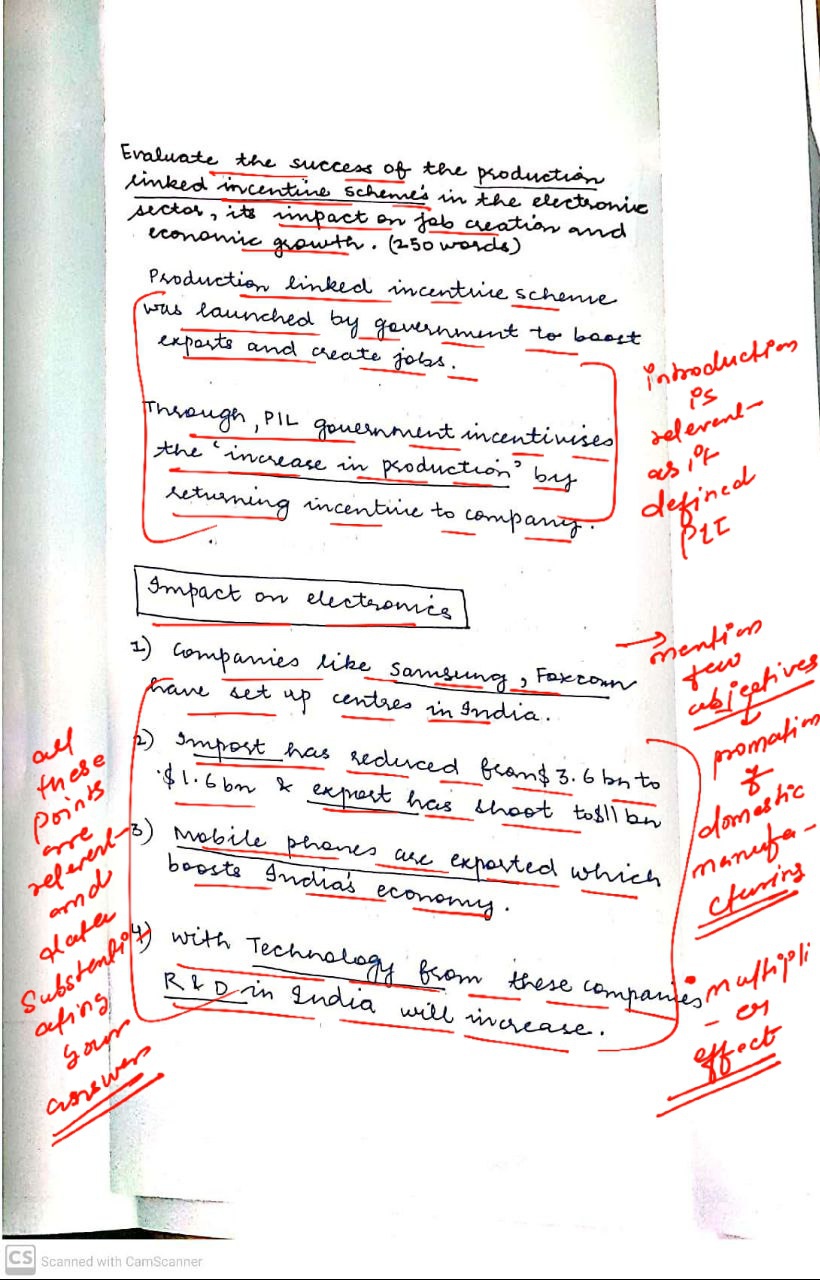 Evaluate the success of the production
linked incentive scheme's in the electronic
sector, its impact on job creation and
economic growth. (250 words)
Production linked incentive scheme
was launched by government to boost
exports and create jobs.
Through, PIL government incentivises
the 'increase in production' by
returning incentive to company.
introduction
is
relevant
as it
defined
PLI
Impact on electronics
1) Companies like Samsung, Foxconn
have set up centres in India.
2) Import has reduced from $3.6 bn to
$1.6 bn & export has shoot to $11 bn
3) Mobile phones are exported which
boosts India's economy.
4) with Technology from these companies
R & D in India will increase.
→ mention
few
objectives
promotion
of
domestic
manufa-
cturing
multipli
- er
effect
all
these
points
are
relevent
and
data
Substenti
ating
your
answer
CS Scanned with CamScanner